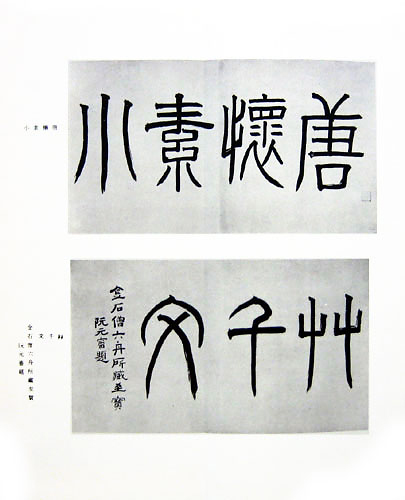 唐懷素小
唐懷素小
艸千文
金石僧六舟所藏至寶
阮元審題
艸千文
金石僧六舟所藏至寶
阮元審題